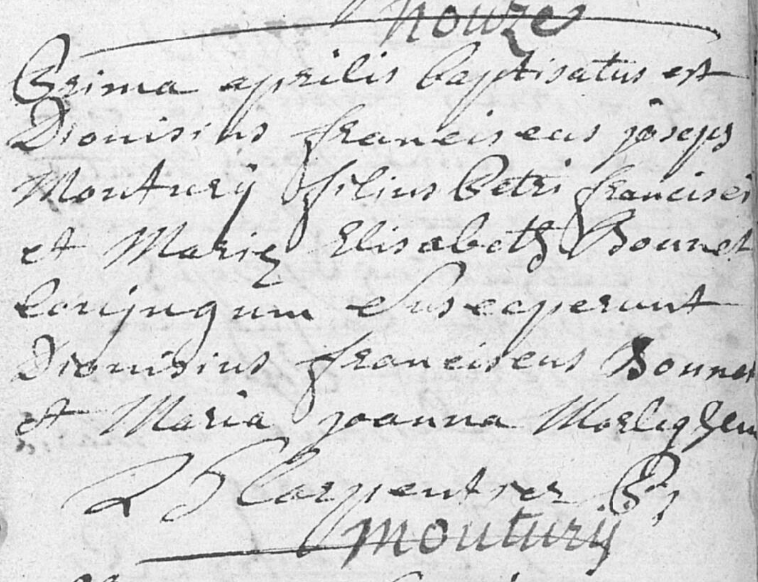 nouze
Prima aprilis baptisatus est
Dionisius franciscus joseph
Monturÿ filius Petri francisci
et Marię Elisabeth Bonnet
Conjugum Susceperunt
Dionisius franciscus Bonnet
et Maria joanna Morlighem
Carpentier
monturÿ